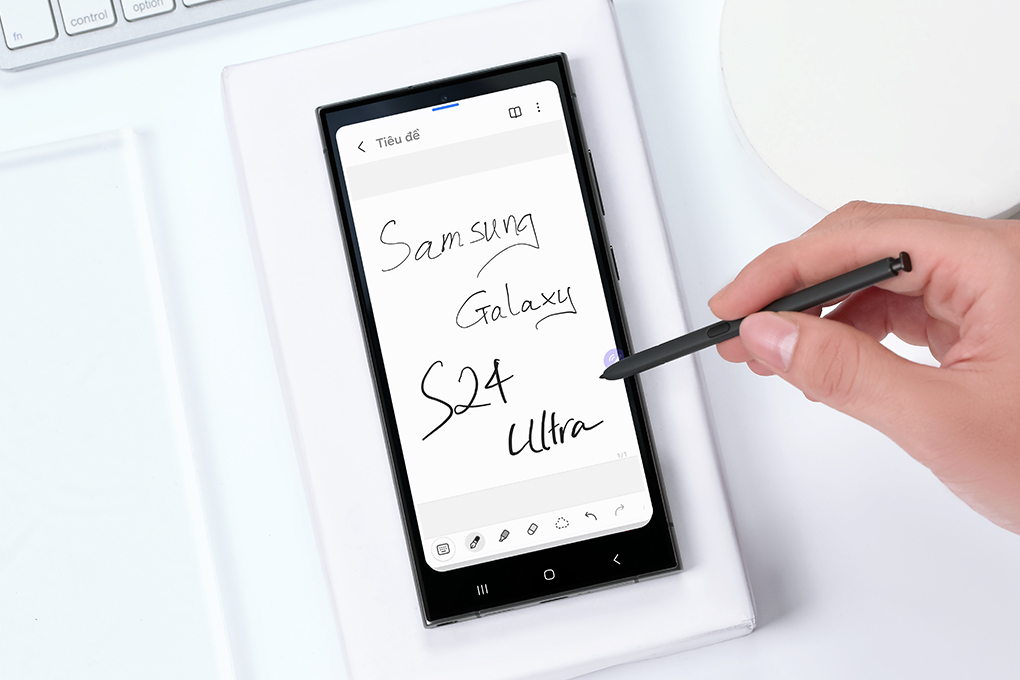 fn
control
option
Tiêu đề
Samsung
Galaxy
S24
Ultra
1/1